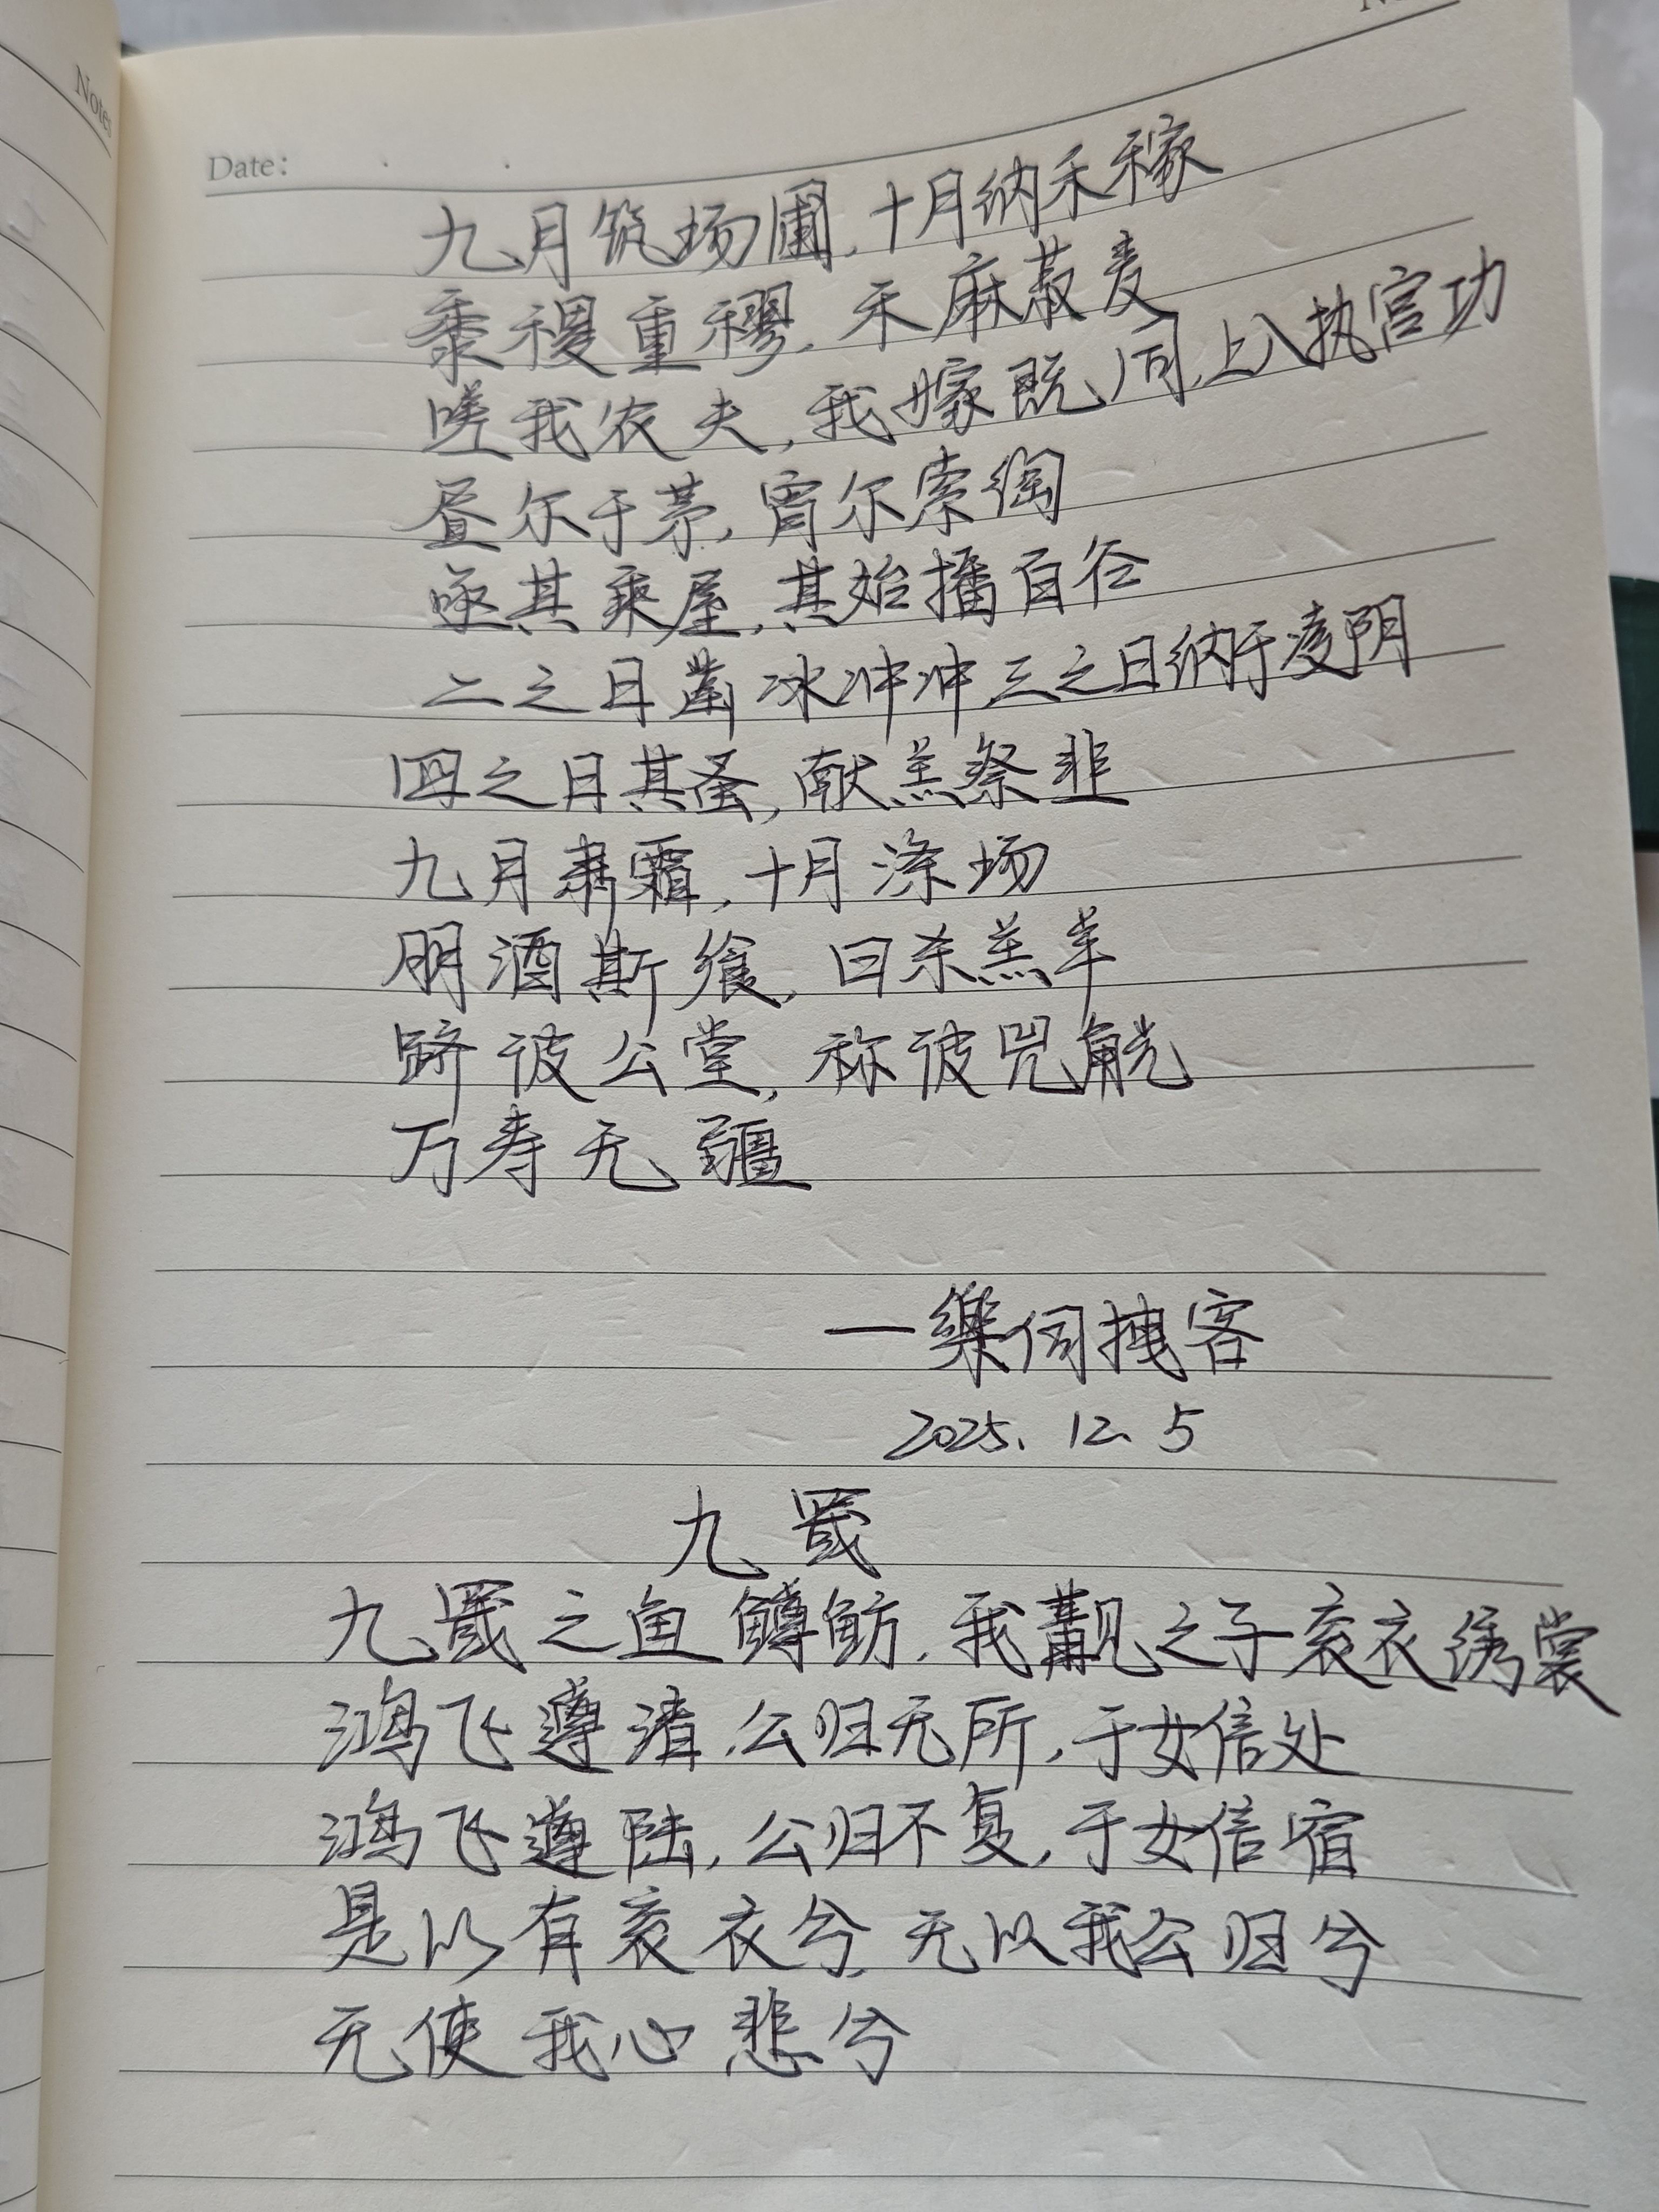 Notes
Date:
九月筑场圃，十月纳禾稼
黍稷重穋，禾麻菽麦
嗟我农夫，我嫁既同，上入执宫功
昼尔于茅，宵尔索绹
亟其乘屋，其始播百谷
二之日凿冰冲冲三之日纳于凌阴
四之日其蚤，献羔祭韭
九月肃霜，十月涤场
朋酒斯飨，曰杀羔羊
跻彼公堂，称彼兕觥
万寿无疆
一樂伺拽客
2025.12.5
九罭
九罭之鱼鳟鲂，我觏之子衮衣绣裳
鸿飞遵渚，公归无所，于女信处
鸿飞遵陆，公归不复，于女信宿
是以有衮衣兮，无以我公归兮
无使我心悲兮